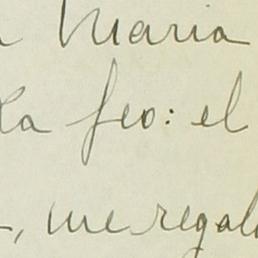 Maria
la feo: el
, me regal